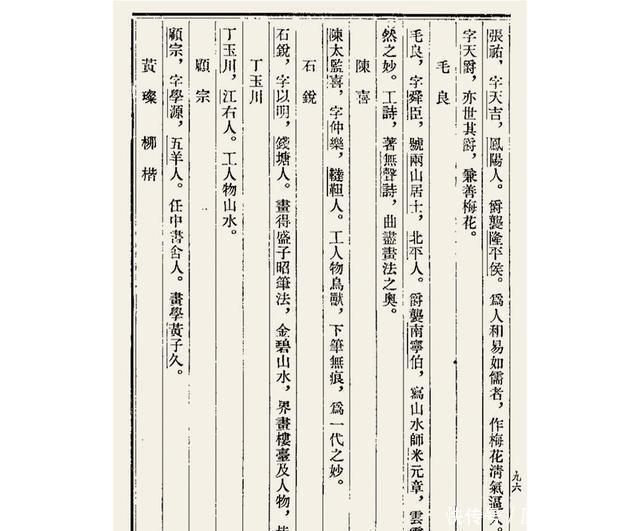 張祐，字天吉，鳳陽人。爵襲隆平侯。爲人和易如儒者，作梅花淸氣逼人。
字天爵，亦世其爵，兼善梅花。
毛良
毛良，字舜臣，號兩山居士，北平人。爵襲南寧伯，寫山水師米元章，雲
然之妙。工詩，著無聲詩，曲盡畫法之奥。
陳喜
陳太監喜，字仲樂，韃靼人。工人物鳥獸，下筆無痕，爲一代之妙。
石銳
石銳，字以明，錢塘人。畫得盛子昭筆法，金碧山水，界畫樓臺及人物，皆
丁玉川
丁玉川，江右人。工人物山水。
顧宗
顧宗，字學源，五羊人。任中書舍人。畫學黃子久。
黃璨 柳楷
九六
快传号